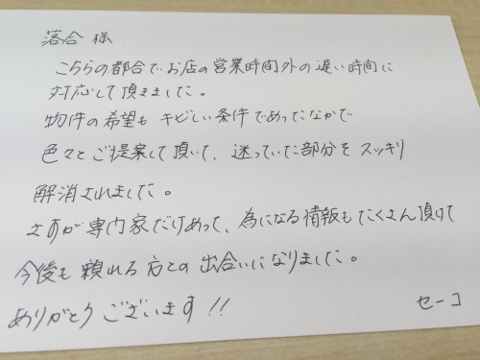 落合 様
こちらの都合でお店の営業時間外の遅い時間に
対応して頂きました。
物件の希望も キビしい条件であってなかで
色々とご提案して頂いて、迷っていた部分を スッキリ
解消されました。
さすが専門家だけあって、為になる情報もたくさん頂けて
今後も 頼れる方との 出合いになりました。
ありがとうございます!!
セーコ